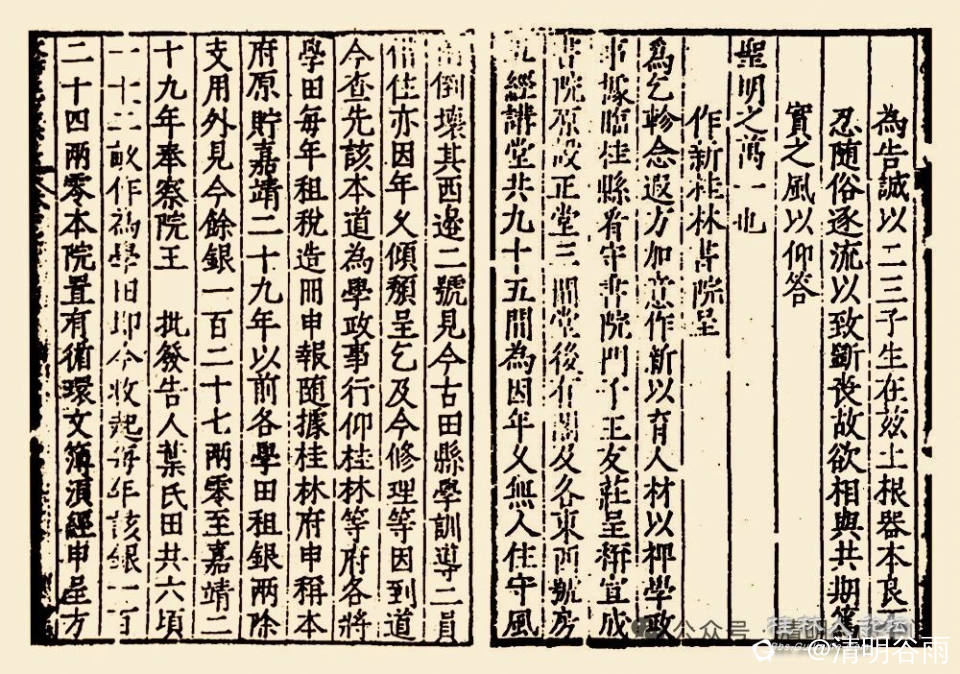 為告誠以二三子生在茲土根器本良
忍随俗逐流以致斷丧故欲相與共期篤
實之風以仰答
聖明之萬一也
作新桂林書院呈
為乞軫念遐方加意作新以育人材以裨學政
事據臨桂縣看守書院門子王友莊呈稱宣成
書院原設正堂三間堂後有閣及各東西號房
五經講堂共九十五間為因年久無人住守風
倒壞其西邊二號見今古田縣學訓導二員
借住亦因年久傾頹呈乞及今修理等因到道
今查先該本道為學政事行仰桂林等府各將
學田每年租稅造冊申報随據桂林府申稱本
府原貯嘉靖二十九年以前各學田租銀兩除
支用外見今餘銀一百二十七兩零至嘉靖二
十九年奉察院王 批發告人葉氏田共六頃
一十二畝作為學田即今收起每年該銀一百
二十四兩零本院置有循環文簿湏經申呈方
公众号
@清明谷雨